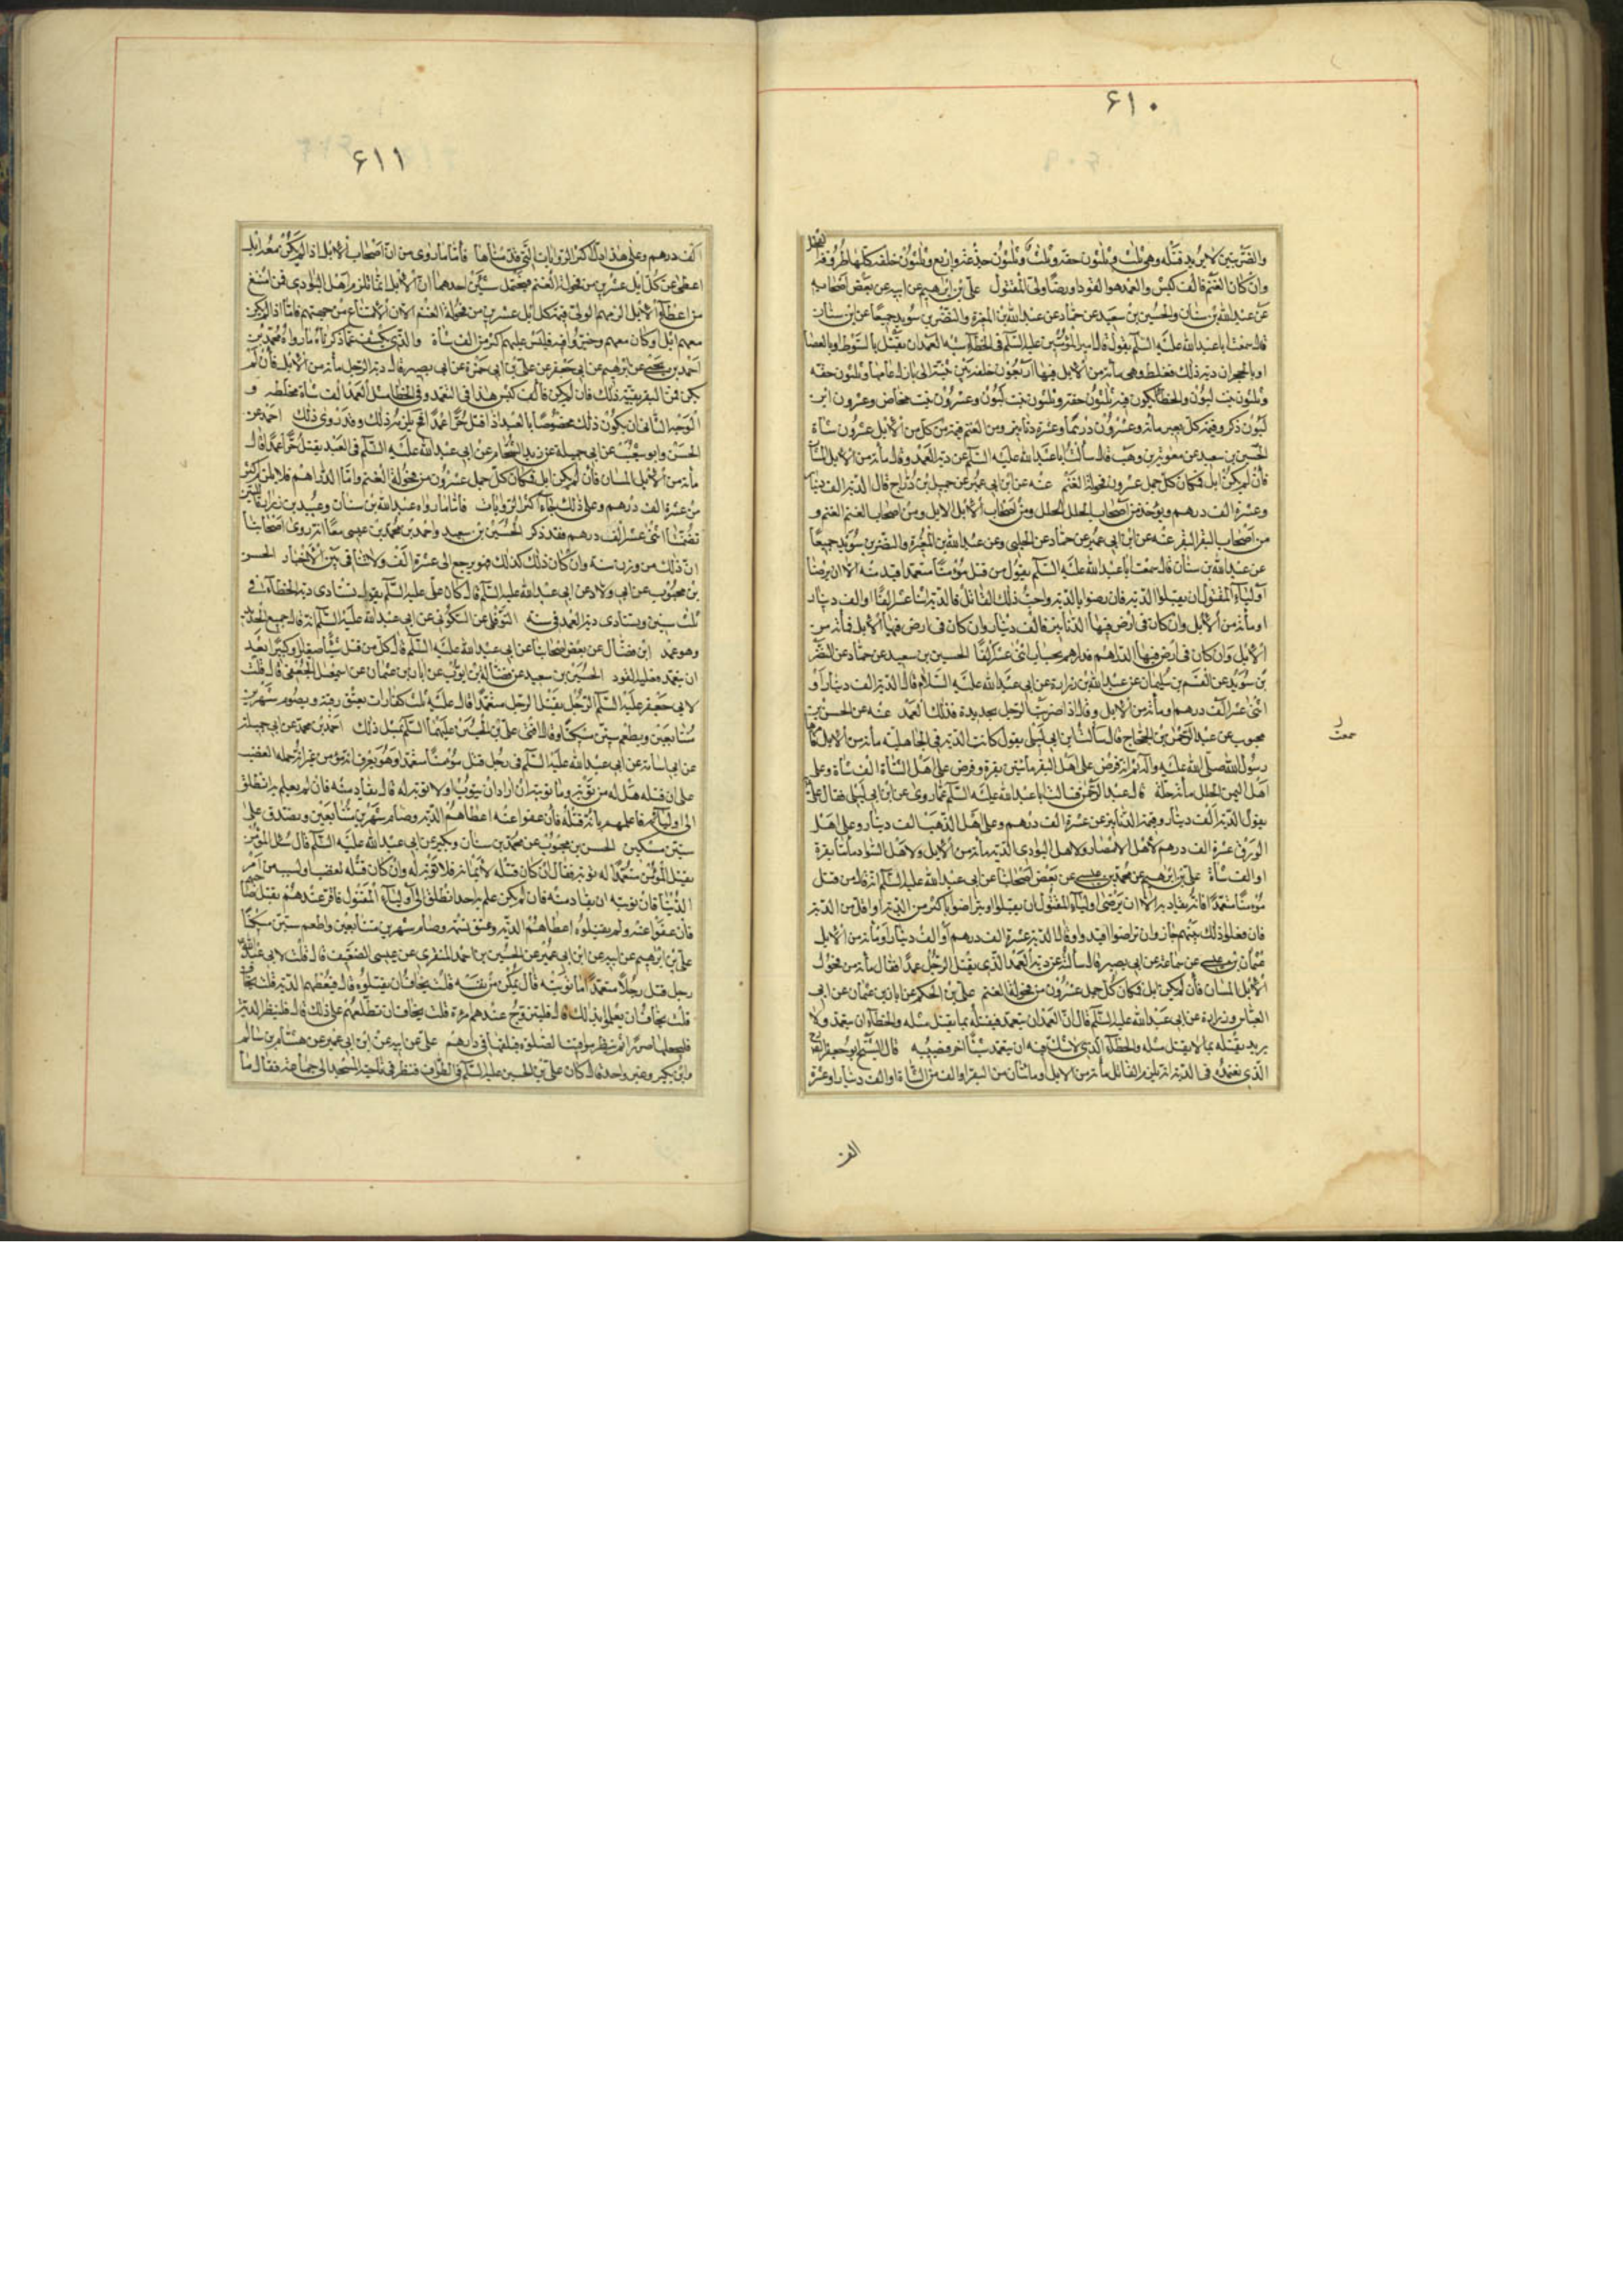 ۶۱۰
والضربتين لا يريد قتله وهي ثلث وثلثون حقة وثلث وثلثون جذعة واربع وثلثون خلفة كلها طروقة الفحل
وان كان الغنم فالف كبش والعمد هو القود او رضا ولي المقتول علي بن ابرهيم عن ابيه عن بعض اصحابه
عن عبد الله بن سنان والحسين بن سعيد عن حماد عن عبد الله بن المغيرة والنضر بن سويد جميعا عن ابن سنان
قال سمعت ابا عبد الله عليه السلم يقول قال امير المؤمنين عليه السلم في الخطأ شبه العمد ان يقتل بالسوط او بالعصا
او بالحجر ان دية ذلك تغلظ وهي مائة من الابل فيها اربعون خلفة بين ثنية الى بازل عامها وثلثون حقة
وثلثون بنت لبون والخطأ يكون فيه ثلثون حقة وثلثون بنت لبون وعشرون بنت مخاض وعشرون ابن
لبون ذكر وقيمة كل بعير مائة وعشرون درهما وعشرة دنانير ومن الغنم قيمة كل من الابل عشرون شاة
الحسين بن سعيد عن معوية بن وهب قال سألت ابا عبد الله عليه السلم عن دية العمد وقال مائة من الابل المسان
فان لم يكن ابل فمكان كل جمل عشرون من فحولة الغنم عنه عن ابن ابي عمير عن جميل بن دراج قال الدية الف دينار
وعشرة الف درهم ويؤخذ من اصحاب الحلل الحلل ومن اصحاب الابل الابل ومن اصحاب الغنم الغنم و
من اصحاب البقر البقر عنه عن ابن ابي عمير عن حماد عن الحلبي وعن عبد الله بن المغيرة والنضر بن سويد جميعا
عن عبد الله بن سنان قال سمعت ابا عبد الله عليه السلم يقول من قتل مؤمنا متعمدا قيد منه الا ان يرضا
اولياء المقتول ان يقبلوا الدية فان رضوا بالدية واحب ذلك القاتل فالدية اثنا عشر الفا او الف دينار
او مائة من الابل وان كان في ارض فيها الدنانير فالف دينار وان كان في ارض فيها الابل فمائة من
الابل وان كان في ارض فيها الدراهم فدراهم بحساب اثني عشر الفا الحسين بن سعيد عن حماد عن النضر
بن سويد عن القسم بن سليمان عن عبد الله بن زرارة عن ابي عبد الله عليه السلام قال الدية الف دينار او
اثني عشر الف درهم او مائة من الابل وقال اذا ضربت الرجل بحديدة فذلك العمد عنه عن الحسن بن
محبوب عن عبد الرحمن بن الحجاج قال سألت ابن ابي ليلى يقول كانت الدية في الجاهلية مائة من الابل
سمعت
رسول الله صلى الله عليه وآله ثم انه فرض على اهل البقر مائتين بقرة وفرض على اهل الشاة الف شاة وعلى
اهل اليمن الحلل مائة حلة قال عبد الرحمن فسألت ابا عبد الله عليه السلم عما روى عن ابن ابي ليلى فقال علي
يقول الدية الف دينار وقيمة الدنانير عن عشرة الف درهم وعلى اهل الذهب الف دينار وعلى اهل
الورق عشرة الف درهم لاهل الامصار ولاهل البوادي الدية مائة من الابل ولاهل السواد مائتا بقرة
او الف شاة علي بن ابرهيم عن محمد بن عيسى عن بعض اصحابنا عن ابي عبد الله عليه السلم انه قال من قتل
مؤمنا متعمدا فانه يقاد به الا ان يرضى اولياء المقتول ان يقبلوا او يتراضوا باكثر من الدية او اقل من الدية
فان فعلوا ذلك بينهم جاز وان تراضوا اقيد وقال الدية عشرة الف درهم او الف دينار او مائة من الابل
عثمان بن عيسى عن جماعة عن ابي بصير قال سألته عن دية العمد الذي يقتل الرجل عمدا فقال مائة من فحول
الابل المسان فان لم يكن ابل فمكان كل جمل عشرون من فحولة الغنم علي بن الحكم عن ابان بن عثمان عن ابي
العباس وزرارة عن ابي عبد الله عليه السلم قال ان العمد ان يتعمد فيقتله بما يقتل مثله والخطأ ان يتعمد ولا
يريد يقتله بما لا يقتل مثله والخطأ الذي لا شك فيه ان يتعمد شيئا اخر فيصيبه قال الشيخ ابو جعفر
الذي نعتمده في الدية انه يلزم القاتل مائة من الابل او مائتان من البقر او الف من الشاة او الف دينار او عشرة
الف
۶۱۱
الف درهم وعلى هذا يدل اكثر الروايات التي قدمناها فاما ما روى من ان اصحاب الابل اذا لم يكن معه ابل
اعطى عن كل ابل عشرين من فحولة الغنم فيحتمل شيئين احدهما ان الابل انما تلزم اهل البوادي فمن امتنع
من اعطاء الابل الزمهم الولي قيمة كل ابل عشرين من فحولة الغنم لان الامتناع من جهتهم فاما اذا لم يكن
معهم ابل وكان معهم غنم فليس عليهم اكثر من الف شاة والذي يكشف عما ذكرناه ما رواه محمد بن
احمد بن يحيى عن ابرهيم عن ابي جعفر عن علي بن ابي حمزة عن ابي بصير قال دية الرجل مائة من الابل فان لم
يكن فمن البقر بقيمة ذلك فان لم يكن فالف كبش هذا في العمد وفي الخطأ مثل العمد الف شاة مخلطة و
الوجه الثاني ان يكون ذلك مخصوصا بالعبد اذا قتل حرا عمدا فحينئذ يلزمه ذلك وقد روى ذلك احمد عن
الحسن وابو شعيب عن ابي جميلة عن زيد الشحام عن ابي عبد الله عليه السلم في العبد يقتل حرا عمدا قال
مائة من الابل المسان فان لم يكن ابل فمكان كل جمل عشرون من فحولة الغنم واما الدراهم فلا يلزم اكثر
من عشرة الف درهم وعلى ذلك جاء اكثر الروايات فاما ما رواه عبد الله بن سنان وعبيد بن زرارة
تضمنتا اثنى عشر الف درهم فقد ذكر الحسين بن سعيد واحمد بن محمد بن عيسى معا انه روى اصحابنا
ان ذلك من وزن ستة وان كان ذلك كذلك فهو يرجع الى عشرة الف ولا تنافي بين الاخبار الحسن
بن محبوب عن ابي ولاد عن ابي عبد الله عليه السلم قال كان علي عليه السلم يقول تستأدى دية الخطأ في
ثلث سنين وتستأدى دية العمد في سنة النوفلي عن السكوني عن ابي عبد الله عليه السلم انه قال جميع الحديد
وهو عمد ابن فضال عن بعض اصحابنا عن ابي عبد الله عليه السلم قال كل من قتل شيئا صغيرا او كبيرا بعد
ان يتعمد فعليه القود الحسين بن سعيد عن فضالة بن ايوب عن ابان بن عثمان عن اسمعيل الجعفي قال قلت
لابي جعفر عليه السلم الرجل يقتل الرجل متعمدا قال عليه ثلث كفارات يعتق رقبة ويصوم شهرين
متتابعين ويطعم ستين مسكينا وقال افتى علي بن الحسين عليهما السلم بمثل ذلك احمد بن محمد عن ابي جميلة
عن ابي اسامة عن ابي عبد الله عليه السلم في رجل قتل مؤمنا متعمدا وهو يعرف انه مؤمن غير انه حمله الغضب
على ان قتله هل له من توبة وما توبته ان اراد ان يتوب او لا توبة له قال يقاد منه فان لم يعلم به انطلق
الى اوليائه فاعلمهم بانه قتله فان عفوا عنه اعطاهم الدية وصام شهرين متتابعين وتصدق على
ستين مسكين الحسن بن محبوب عن محمد بن سنان وبكير عن ابي عبد الله عليه السلم قال سئل المؤمن
يقتل المؤمن متعمدا له توبة فقال ان كان قتله لايمانه فلا توبة له وان كان قتله لغضب او لسبب من امر
الدنيا فان توبته ان يقاد منه فان لم يكن علم به احد انطلق الى اولياء المقتول فاقر عندهم بقتل صاحبهم
فان عفوا عنه ولم يقتلوه اعطاهم الدية وعتق نسمة وصام شهرين متتابعين واطعم ستين مسكينا
علي بن ابرهيم عن ابيه عن ابن ابي عمير عن الحسين بن احمد المنقري عن عيسى الضعيف قال قلت لابي عبد الله
رجل قتل رجلا متعمدا ما توبته قال يمكن من نفسه قلت يخاف ان يقتلوه قال فيعطهم الدية قلت يخاف
قلت يخاف ان يعلموا بذلك قال فليتزوج عندهم امرءة قلت يخاف ان تطلعهم على ذلك قال فلينظر الدية
فليجعلها صررا ثم ينظر مواقيت الصلوة فيلقها في دارهم علي عن ابيه عن ابن ابي عمير عن هشام بن سالم
وابن بكير وغير واحد قال كان علي بن الحسين عليه السلم في الطواف فنظر في ناحية المسجد الى جماعة فقال ما